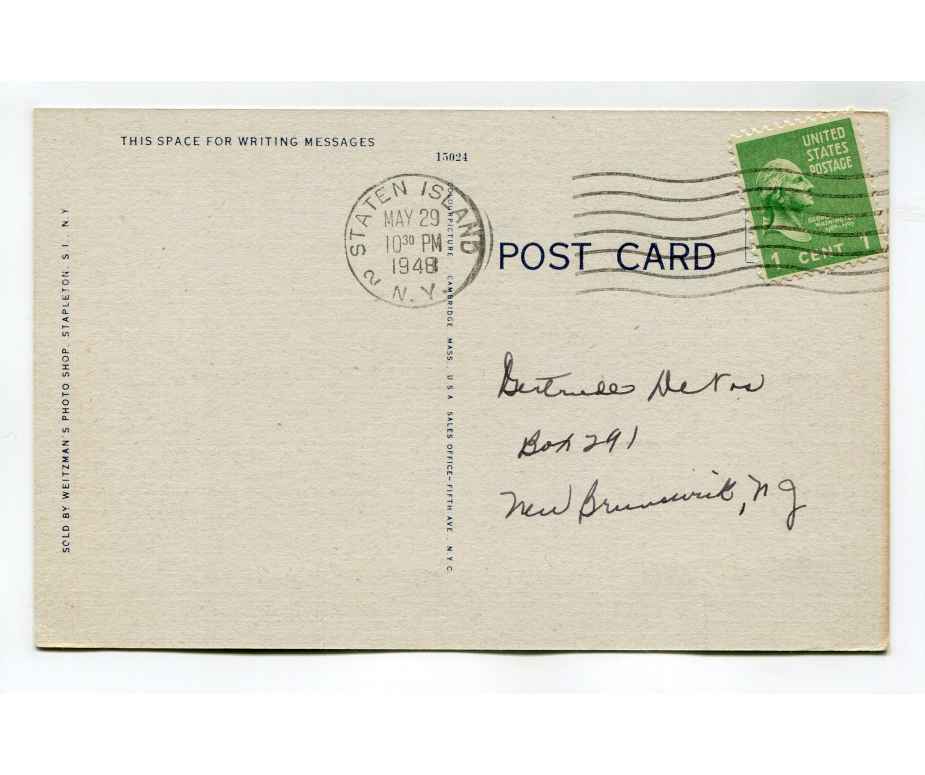 THIS SPACE FOR WRITING MESSAGES
15024
STATEN ISLAND
MAY 29
10 30 PM
1948
2 N.Y.
UNITED
STATES
POSTAGE
1 CENT 1
POST CARD
Gertrude
Box 291
New Brunswick, NJ
SOLD BY WEITZMAN'S PHOTO SHOP, STAPLETON, S. I. N. Y
COLOURPICTURE CAMBRIDGE MASS. U S A SALES OFFICE-FIFTH AVE. N Y C